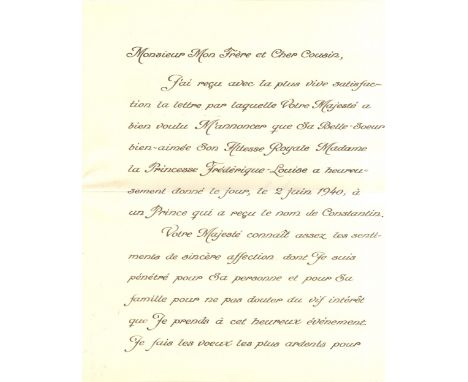 Monsieur Mon Frère et Cher Cousin,
J'ai reçu avec la plus vive satisfac-
tion la lettre par laquelle Votre Majesté a
bien voulu M'annoncer que Sa Belle-Soeur
bien-aimée Son Altesse Royale Madame
la Princesse Frédérique-Louise a heureu-
sement donné le jour, le 2 juin 1940, à
un Prince qui a reçu le nom de Constantin.
Votre Majesté connaît assez les senti-
ments de sincère affection dont Je suis
pénétré pour Sa personne et pour Sa
famille pour ne pas douter du vif intérêt
que Je prends à cet heureux événement.
Je fais les voeux les plus ardents pour